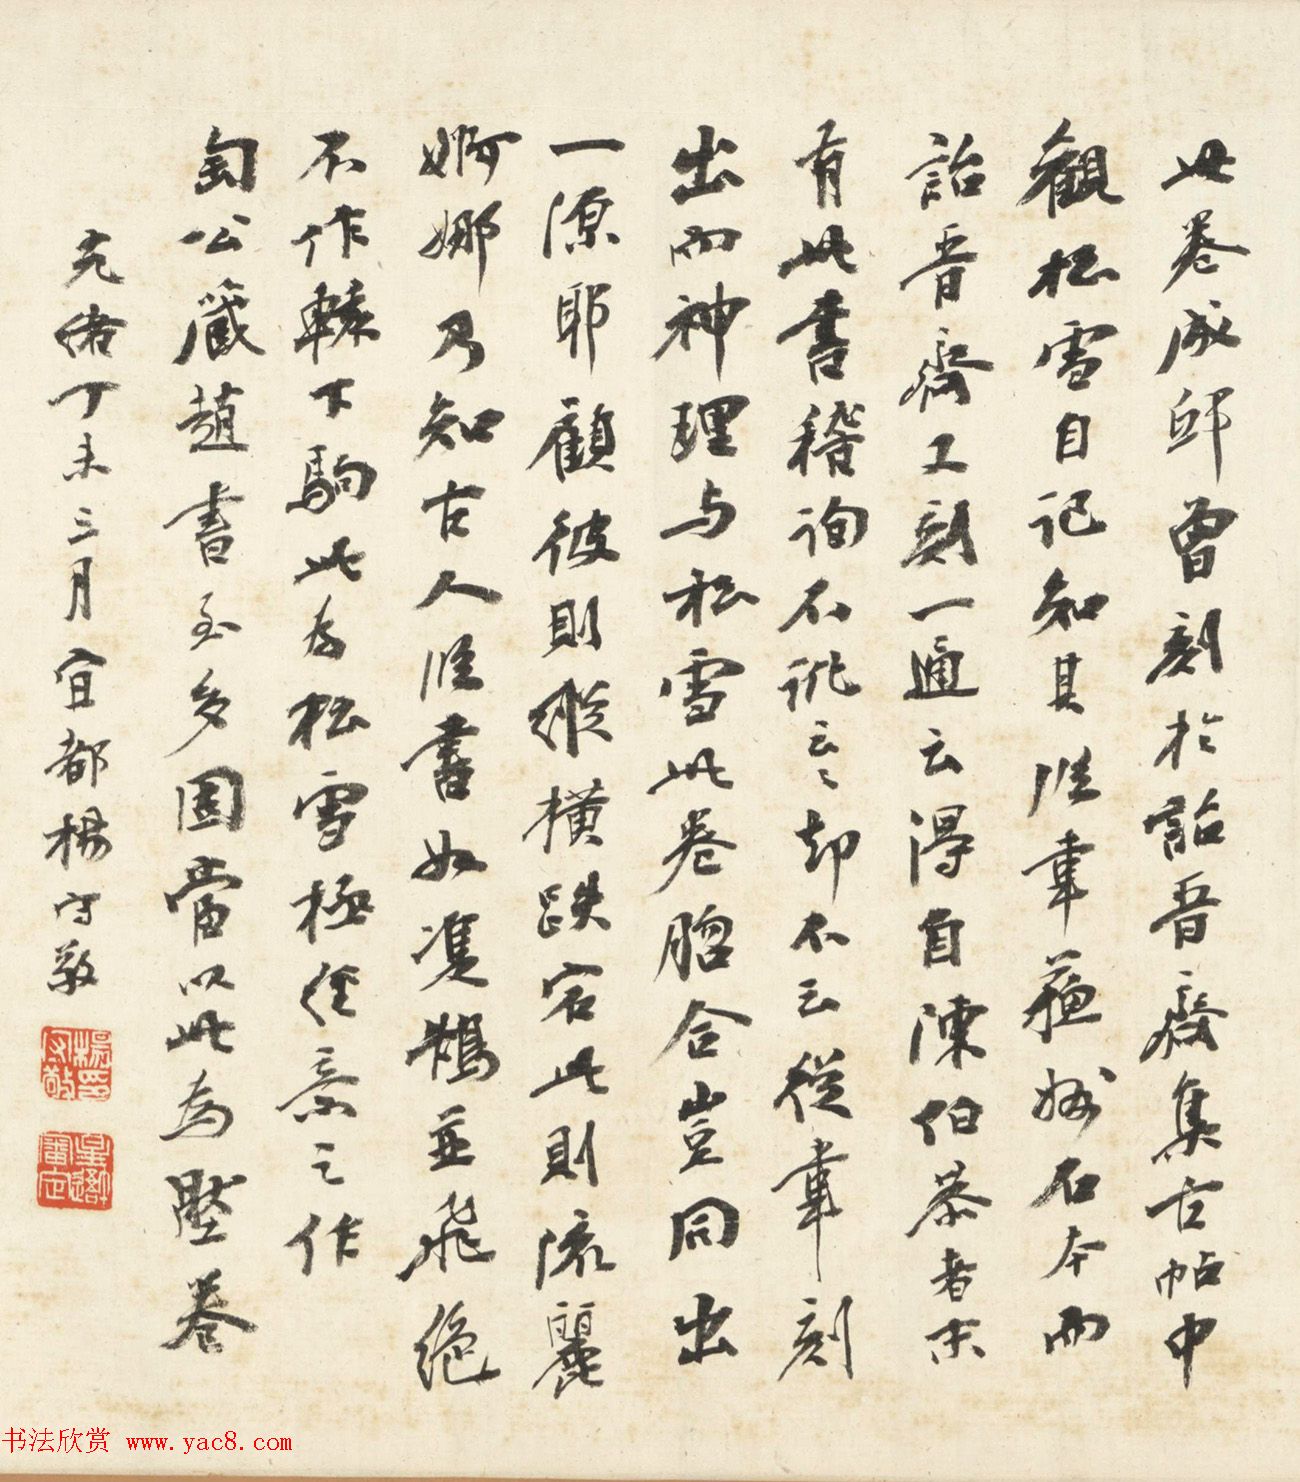 此卷成邸曾刻於詒晉齋集古帖中
觀松雪自記知其從韋蘇州石本而
詒晉齋又刻一通云得自陳伯恭者末
有此書稽詢不訛云々却不云從韋刻
出而神理与松雪此卷脗合豈同出
一源耶顧彼則縱橫跌宕此則流麗
婀娜乃知古人臨書如雙鵠並飛絕
不作轅下駒此為松雪極經意之作
匋公藏趙書至多固當以此為壓卷
光緒丁未三月宜都楊守敬
楊守敬印
星吾審定
书法欣赏 www.yac8.com